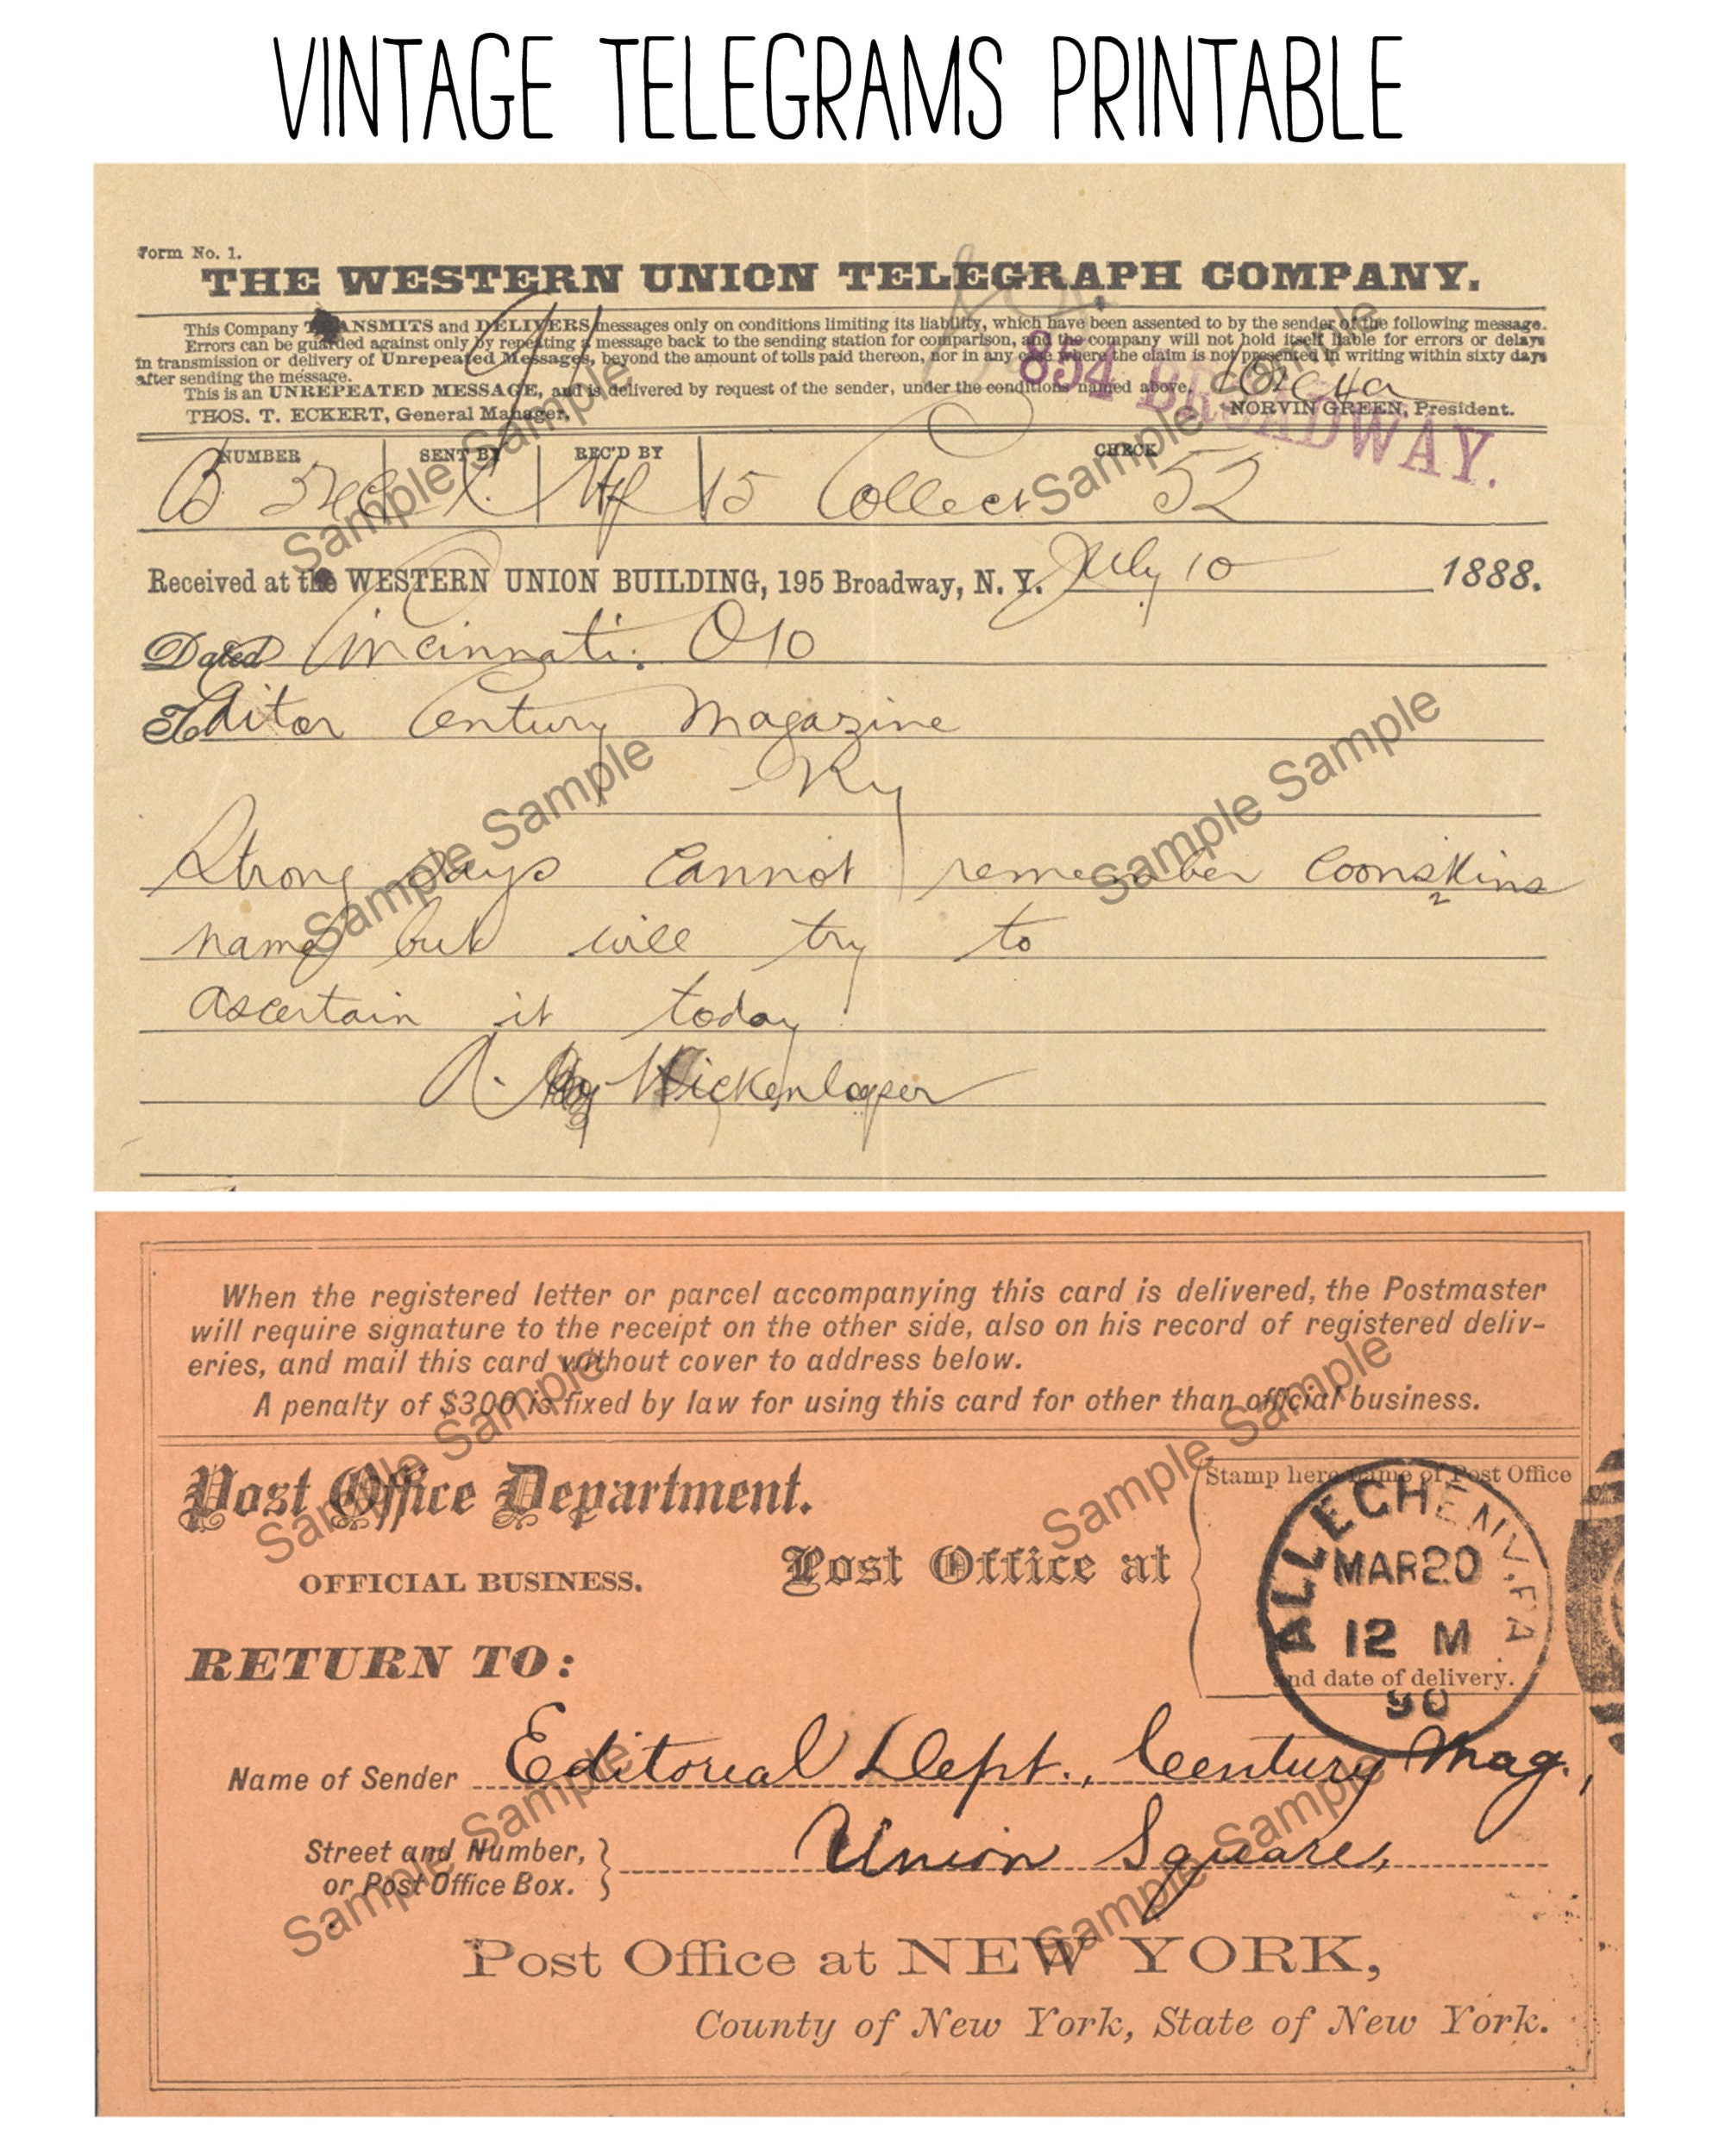 VINTAGE TELEGRAMS PRINTABLE
Form No. 1.
THE WESTERN UNION TELEGRAPH COMPANY.
This Company TRANSMITS and DELIVERS messages only on conditions limiting its liability, which have been assented to by the sender of the following message.
Errors can be guarded against only by repeating a message back to the sending station for comparison, and the company will not hold itself liable for errors or delays
in transmission or delivery of Unrepeated Messages, beyond the amount of tolls paid thereon, nor in any case where the claim is not presented in writing within sixty days
after sending the message.
This is an UNREPEATED MESSAGE, and is delivered by request of the sender, under the conditions named above.
THOS. T. ECKERT, General Manager. NORVIN GREEN, President.
854 BROADWAY.
NUMBER SENT BY REC'D BY CHECK
B 15 Collect 52
Received at the WESTERN UNION BUILDING, 195 Broadway, N. Y. July 10 1888.
Dated Cincinnati. O 10
To Editor Century Magazine
Ky
Strong says cannot remember Coonskins
name but will try to
ascertain it today
A. Hickenlooper
When the registered letter or parcel accompanying this card is delivered, the Postmaster
will require signature to the receipt on the other side, also on his record of registered deliv-
eries, and mail this card without cover to address below.
A penalty of $300 is fixed by law for using this card for other than official business.
Post Office Department.
OFFICIAL BUSINESS.
Post Office at
Stamp here name of Post Office
and date of delivery.
ALLEGHENY, PA.
MAR 20
12 M
90
RETURN TO:
Name of Sender Editorial Dept., Century Mag.,
Street and Number, Union Square,
or Post Office Box.
Post Office at NEW YORK,
County of New York, State of New York.
Sample Sample
Sample Sample
Sample Sample
Sample Sample
Sample Sample
Sample Sample
Sample Sample
Sample Sample